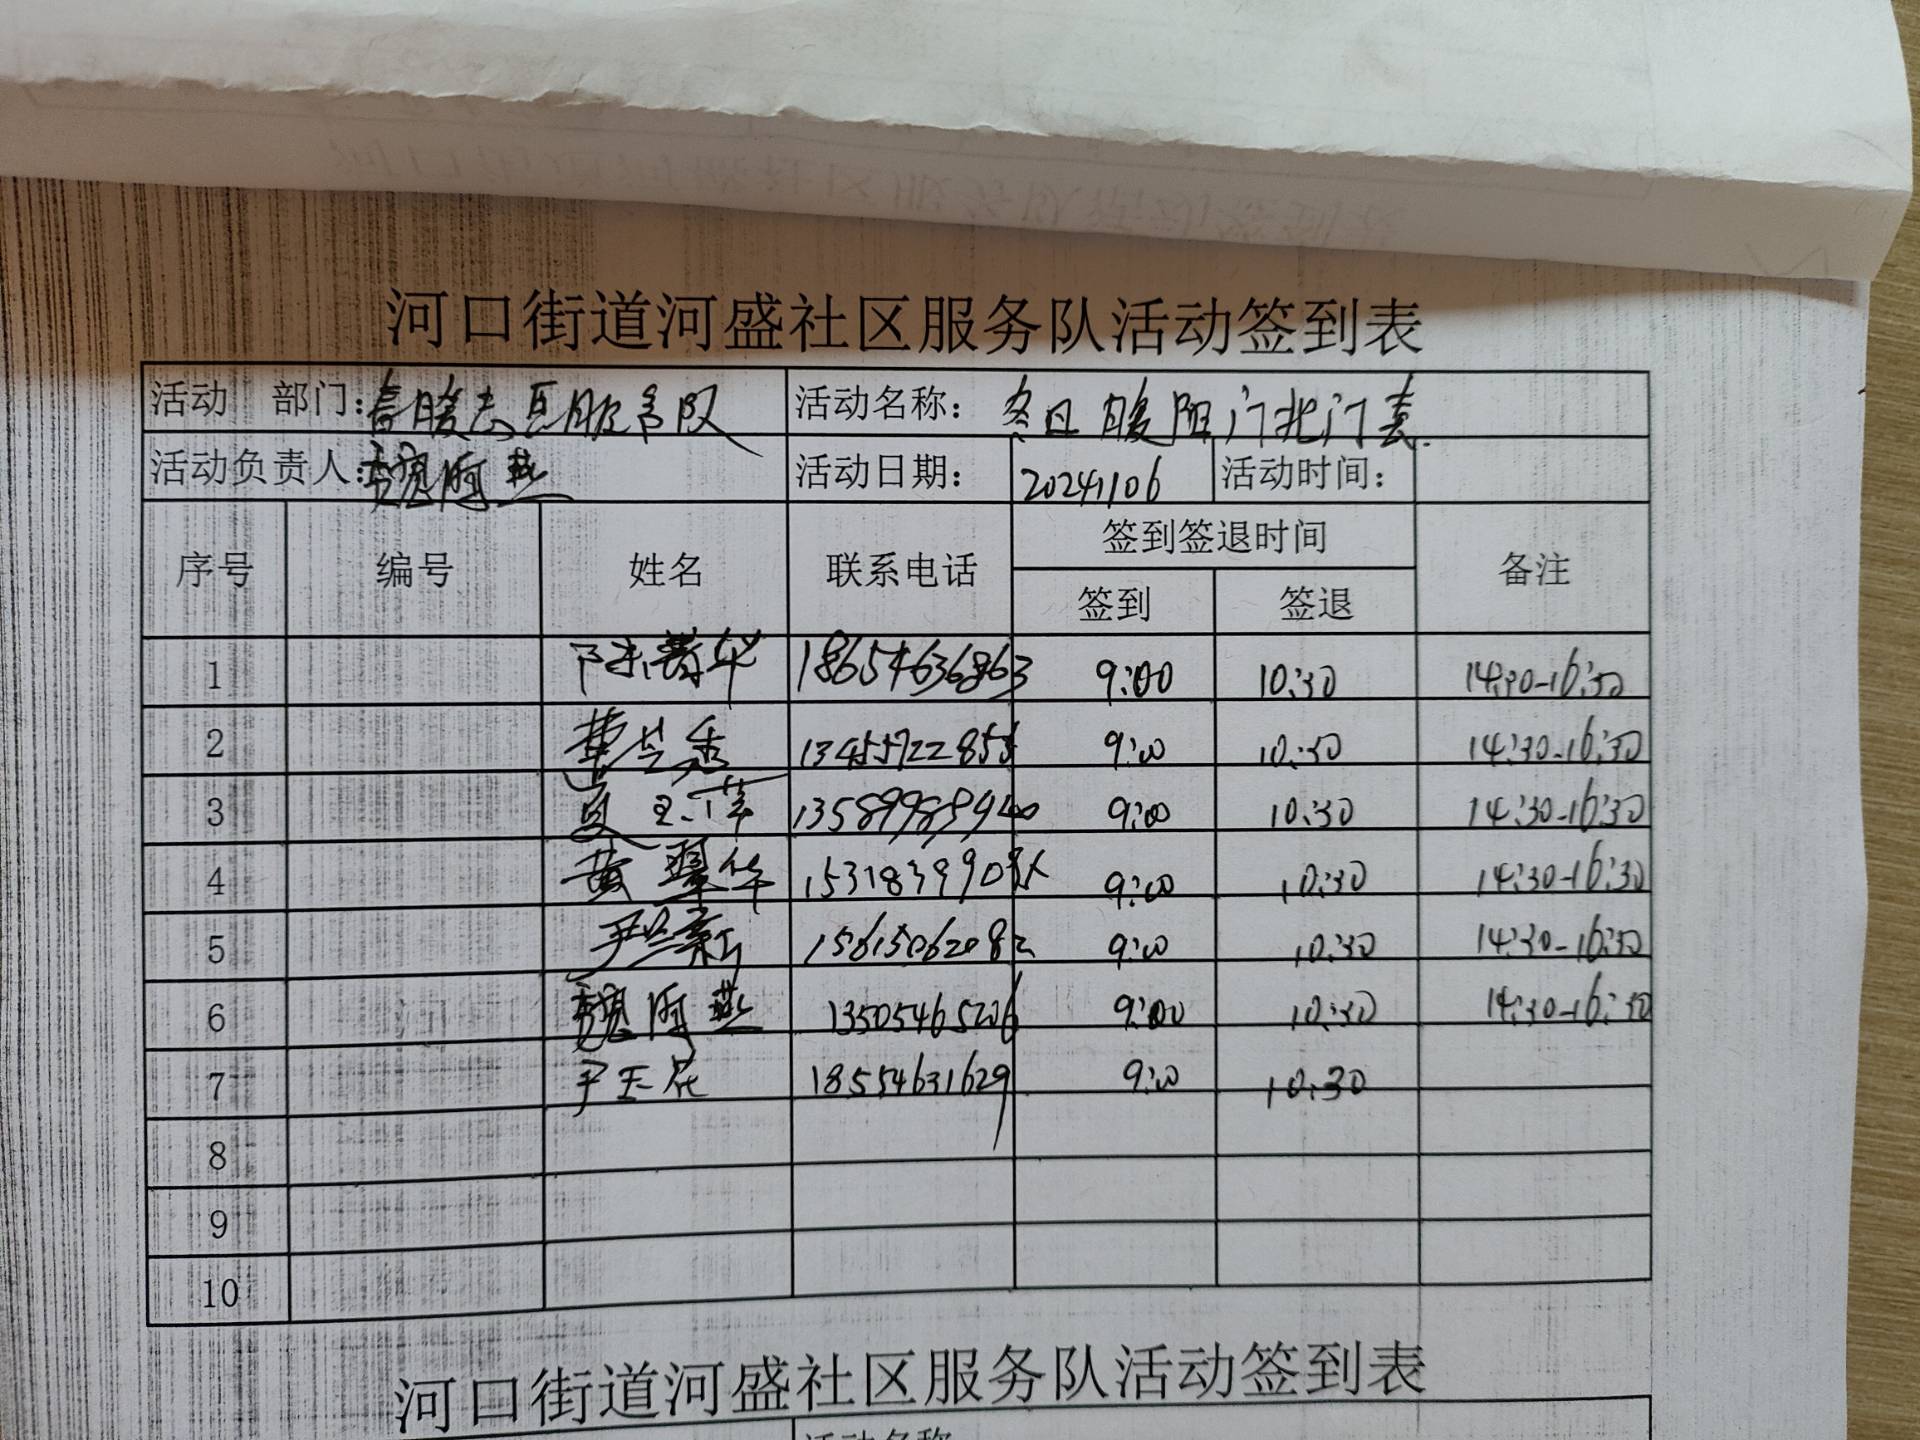 河口街道河盛社区服务队活动签到表
活动 部门：春暖志愿服务队 活动名称： 冬日暖阳
活动负责人：魏 燕 活动日期： 20241106 活动时间：
序号 编号 姓名 联系电话 签到签退时间 备注
签到 签退
1 陈 华 18654636863 9:00 10:30 14:30-16:30
2 曹兰秀 9:00 10:30 14:30-16:30
3 13589985940 9:00 10:30 14:30-16:30
4 黄翠华 9:00 10:30 14:30-16:30
5 尹兰新 15615062082 9:00 10:30 14:30-16:30
6 魏 燕 13505465206 9:00 10:30 14:30-16:30
7 尹玉花 18554631629 9:00 10:30
8
9
10
河口街道河盛社区服务队活动签到表
活动名称